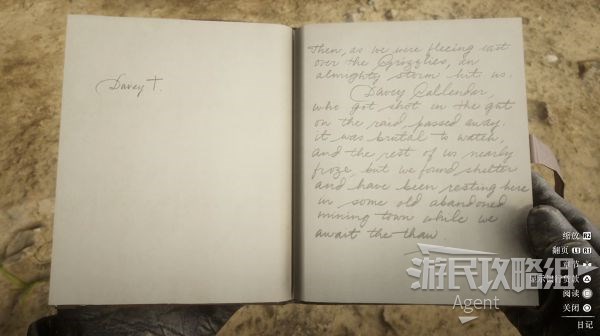 Davey †.
Then, as we were fleeing east
over the Grizzlies, an
almighty storm hit us.
Davey Callender,
who got shot in the gut
on the raid passed away.
it was brutal to watch,
and the rest of us nearly
froze but we found shelter
and have been resting here
in some old abandoned
mining town while we
await the thaw
游民攻略组
Agent
缩放 R2
翻页 L1 R1
阅读
关闭
日记